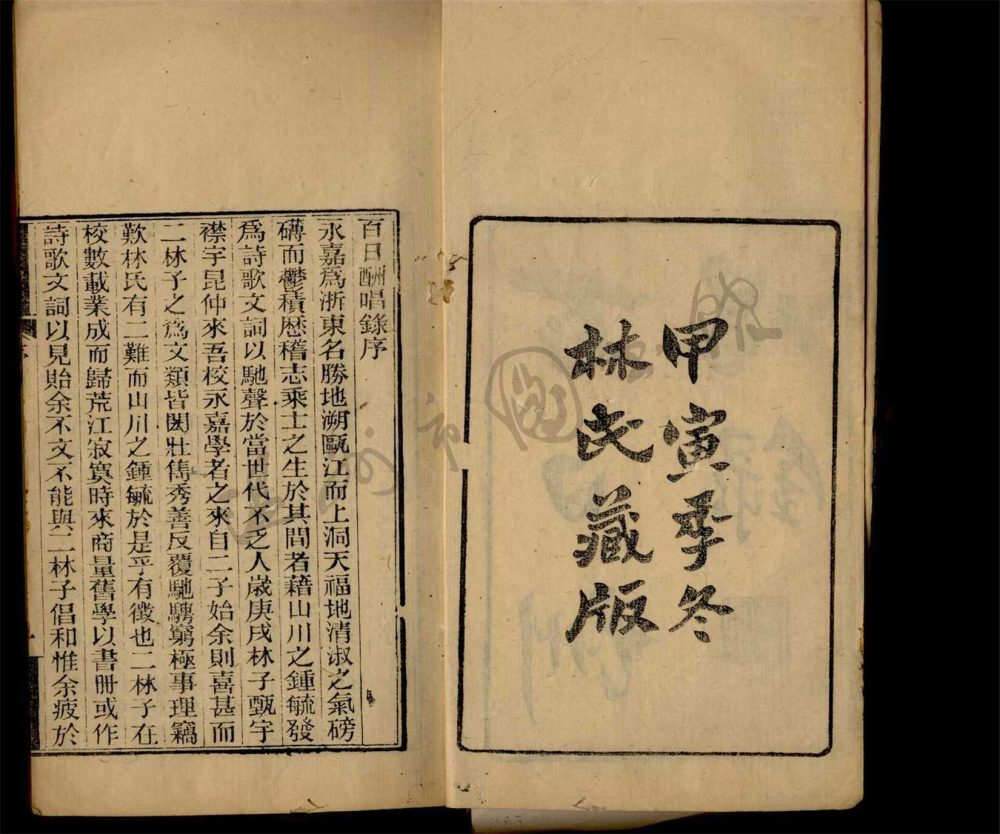 甲寅季冬
林氏藏版
百日酬唱錄序
永嘉爲浙東名勝地溯甌江而上洞天福地清淑之氣磅
礴而鬱積歷稽志乘士之生於其間者藉山川之鍾毓發
爲詩歌文詞以馳聲於當世代不乏人歲庚戌林子甄宇
襟宇昆仲來吾校永嘉學者之來自二子始余則喜甚而
二林子之爲文類皆閎壯雋秀善反覆馳騁窮極事理竊
歎林氏有二難而山川之鍾毓於是乎有徵也二林子在
校數載業成而歸荒江寂寞時來商量舊學以書冊或作
詩歌文詞以見貽余不文不能與二林子倡和惟余疲於